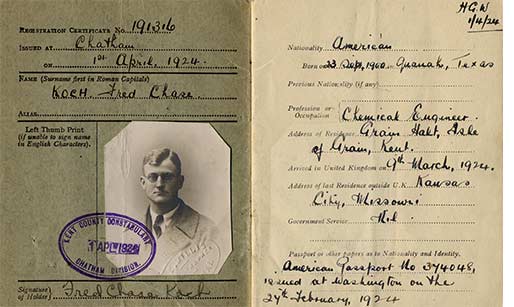 REGISTRATION CERTIFICATE No. 191316
ISSUED AT Chatham
ON 1st April, 1924.
NAME (Surname first in Roman Capitals)
KOCH Fred Chase
ALIAS
Left Thumb Print
(if unable to sign name
in English Characters).
KENT COUNTY CONSTABULARY
1 APL 1924
CHATHAM DIVISION
Signature
of Holder Fred Chase Koch
H.G.W
1/4/24
Nationality American
Born on 23 Sept, 1900 in Quanah, Texas
Previous Nationality (if any)
Profession or
Occupation Chemical Engineer.
Address of Residence Grain Halt, Isle
of Grain, Kent.
Arrived in United Kingdom on 9th March, 1924.
Address of last Residence outside U.K. Kansas
City, Missouri
Government Service Nil
Passport or other papers as to Nationality and Identity.
American Passport No 374048,
issued at Washington on the
27th February, 1924